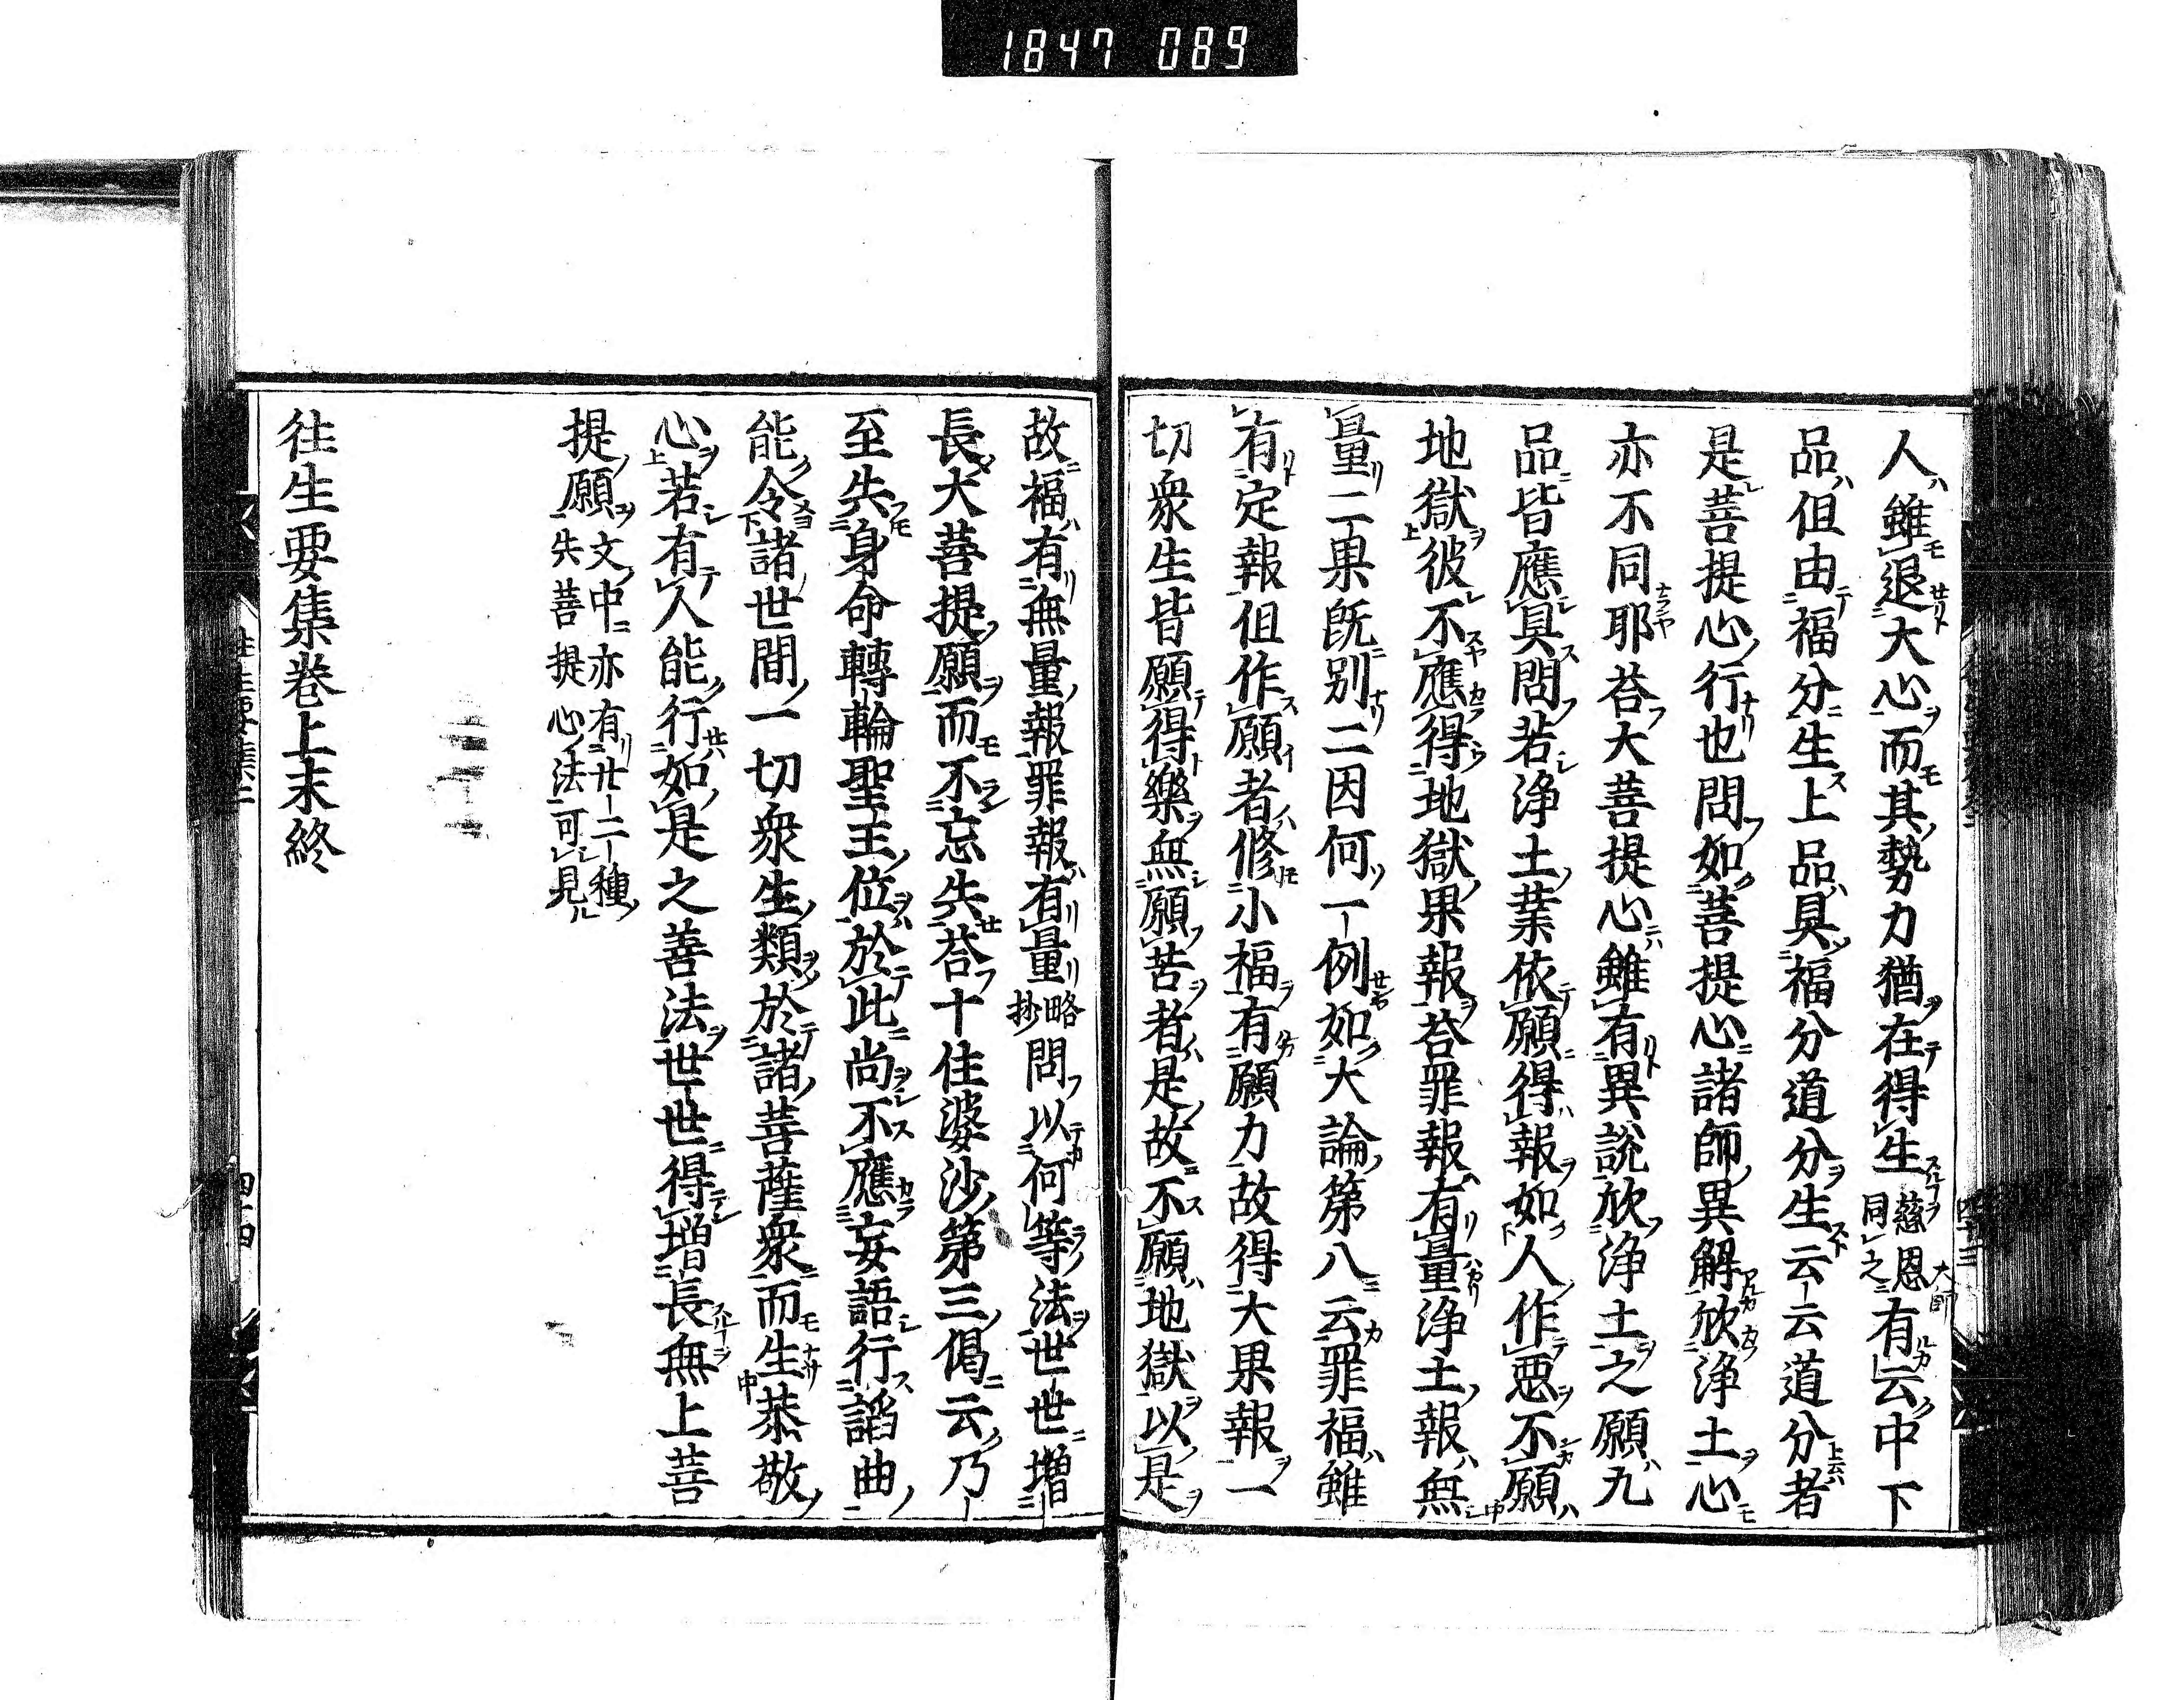 1847 089
人雖退大心而其勢力猶在得生慈恩大師同之有云中下
品但由福分生上品具福分道分生云云道分者
是菩提心行也問如菩提心諸師異解欣浄土心
亦不同耶荅大菩提心雖有異說欣浄土之願九
品皆應具問若浄土業依願得報如人作惡不願
地獄彼不應得地獄果報荅罪報有量浄土報無
量二果既別二因何一例如大論第八云罪福雖
有定報但作願者修小福有願力故得大果報一
切衆生皆願得樂無願苦者是故不願地獄以是
故福有無量報罪報有量略抄問以何等法世世增
長大菩提願而不忘失荅十住婆沙第三偈云乃
至失身命轉輪聖王位於此尚不應妄語行諂曲
能令諸世間一切衆生類於諸菩薩衆而生恭敬
心若有人能行如是之善法世世得增長無上菩
提願文中亦有廿二種失菩提心法可見
往生要集巻上末終
四十四